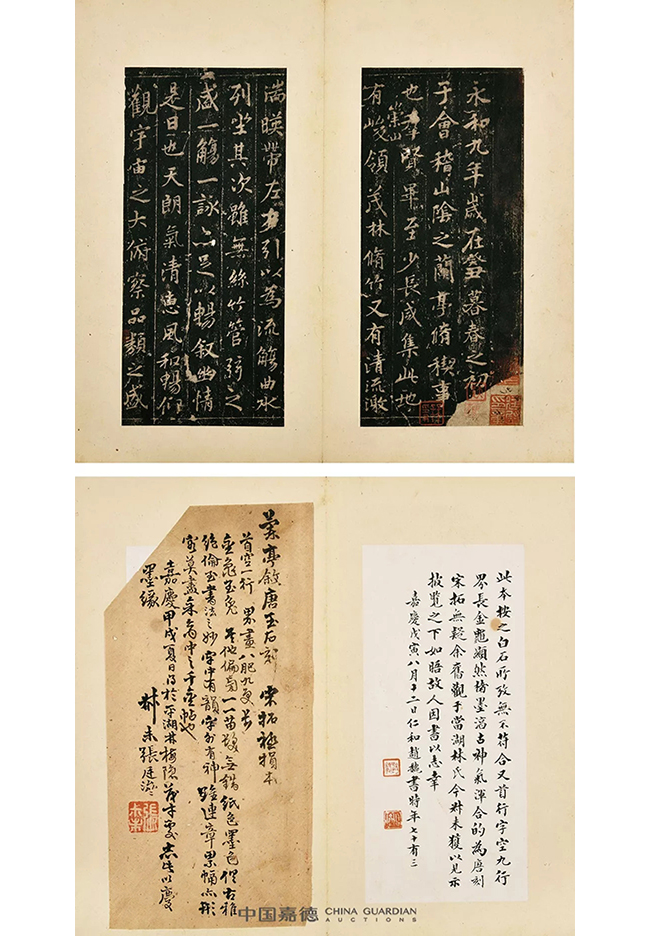 永和九年歲在癸丑暮春之初
于會稽山陰之蘭亭脩禊事
也群賢畢至少長咸集此地
有崇山峻領茂林脩竹又有清流激
湍暎帶左右引以為流觴曲水
列坐其次雖無絲竹管弦之
盛一觴一詠亦足以暢敘幽情
是日也天朗氣清惠風和暢仰
觀宇宙之大俯察品類之盛
此本按之白石所攷無不符合又首行字空九行
界長金龜顯然搨墨古神氣渾合的為唐刻
宋拓無疑余舊觀于當湖林氏今叔未獲以見示
披覽之下如晤故人因書以志幸
嘉慶戊寅八月十二日仁和趙魏書時年七十有三
蘭亭敘唐玉石刻 宋拓損本
首空一行 界畫八肥九更長
金龜玉兔 其他偏旁一一苗髮無錯紙色墨色俱古雅
絕倫至書法之妙字中有韻字外有神雖連章累幅亦形
容莫盡余齋中之千金帖也
嘉慶甲戌夏日得於平湖林梅隱茂才處志此以慶
墨緣
叔未張廷濟
中国嘉德 CHINA GUARDIAN
AUCTIONS